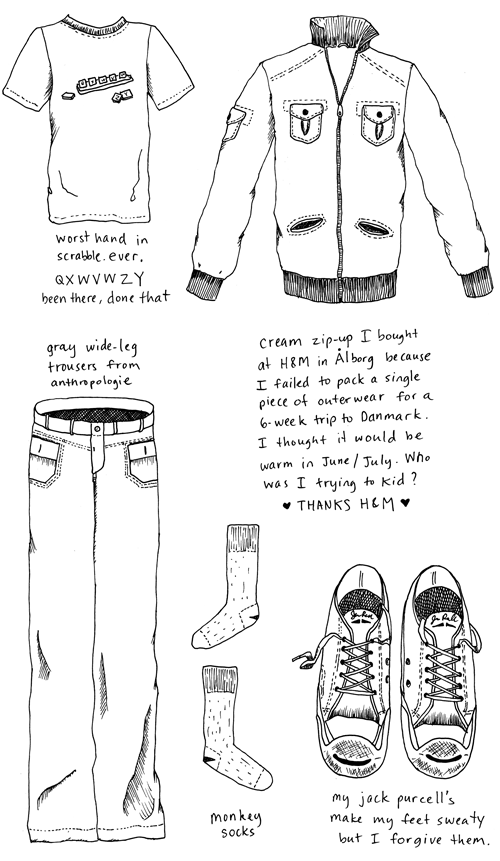 worst hand in
scrabble.ever.
QXWVWZY
been there, done that
cream zip-up I bought
at H&M in Ålborg because
I failed to pack a single
piece of outerwear for a
6-week trip to Danmark.
I thought it would be
warm in June/July. Who
was I trying to kid?
♥ THANKS H&M ♥
gray wide-leg
trousers from
anthropologie
monkey
socks
my jack purcell's
make my feet sweaty
but I forgive them.